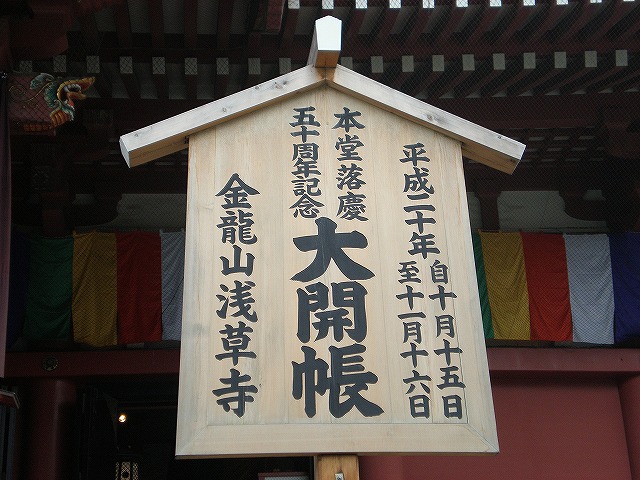 平成二十年
自十月十五日
至十一月十六日
本堂落慶
五十周年記念
大開帳
金龍山浅草寺